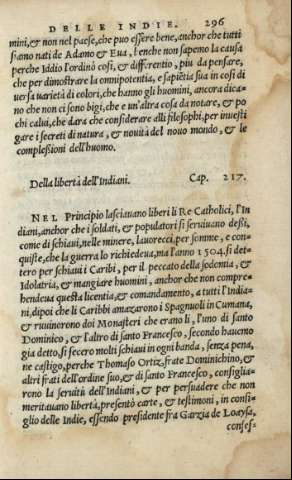 DELLE INDIE. 296
mini,& non nel paese, che puo essere bene, anchor che tutti
siamo nati de Adamo & Eua, benche non sapemo la causa
perche Iddio l'ordinò così, & differentio, piu da pensare,
che per dimostrare la omnipotentia, e sapiẽtia sua in così di
uersa uarietà di colori, che hanno gli huomini, ancora dica-
no che non ci sono bigi, che e un'altra cosa da notare, & po
chi calui, che dara che considerare alli filosophi, per inuesti
gare i secreti di natura, & nouità del nouo mondo, & le
complessioni dell'huomo.
Della libertà dell'Indiani. Cap. 217.
NEL Principio lasciauano liberi li Re Catholici, l'In
diani, anchor che i soldati, & populatori si seruiuano dessi,
come di schiaui, nelle minere, lauorecci, per somme, e con-
quiste, che la guerra lo richiedeua, ma l'anno 1504, si det-
tero per schiaui i Caribi, per il peccato della sodomia, &
Idolatria, & mangiare huomini, anchor che non compre-
hendeua questa licentia, & comandamento, a tutti l'India-
ni, dipoi che li Caribbi amazorono i Spagnuoli in Cumana,
& ruuinorono doi Monasteri che erano lì, l'uno di santo
Dominico, & l'altro di santo Francesco, secondo hauemo
gia detto, si fecero molti schiaui in ogni banda, senza pena,
ne castigo, perche Thomaso Ortiz, frate Dominichino, &
altri frati dell'ordine suo, & di santo Francesco, consiglia-
rono la seruitù dell'Indiani, & per persuadere che non
meritauano libertà, presentò carte, & testimoni, in consi-
glio delle Indie, essendo presidente fra Garzia de Loaysa,
confes-